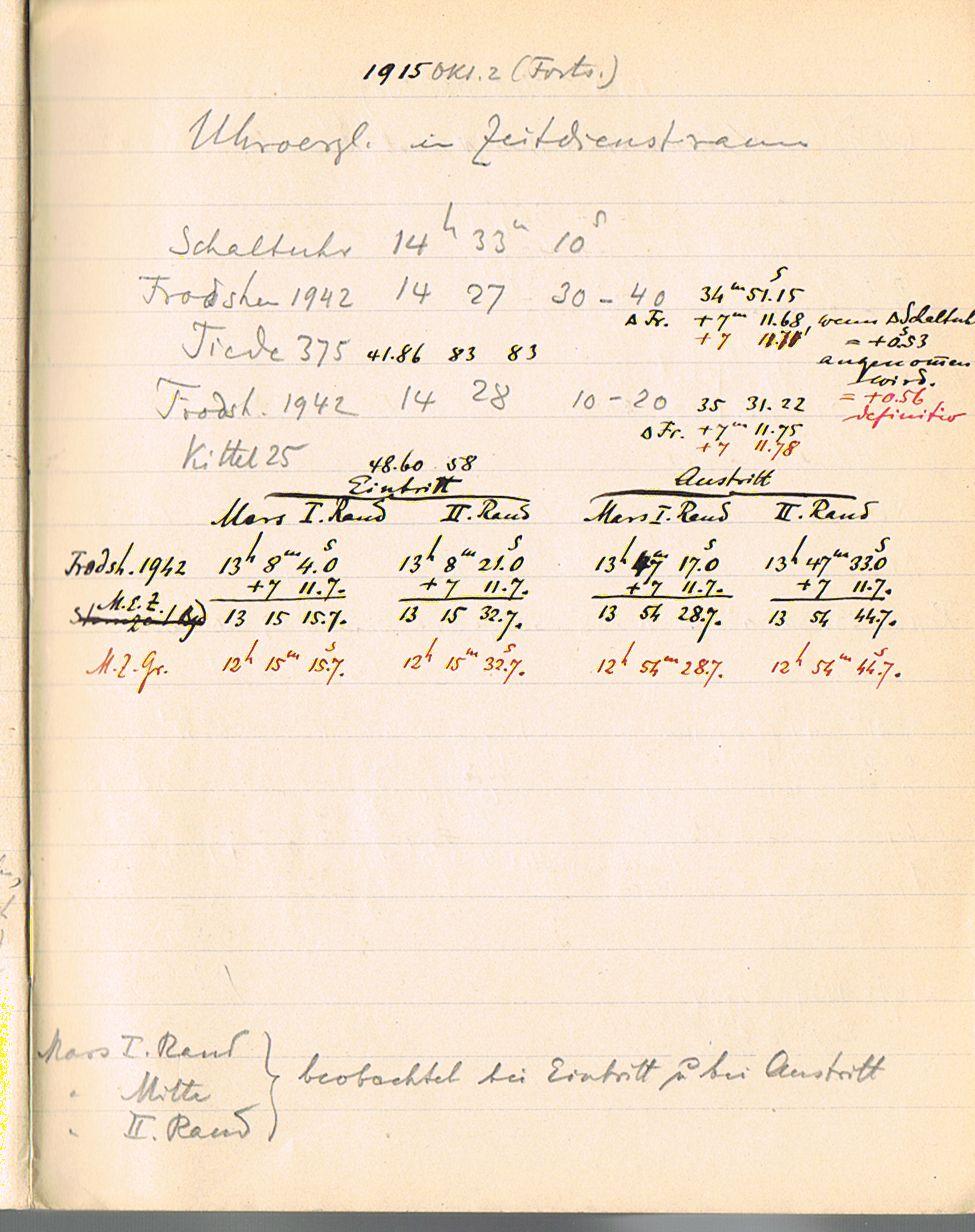 1915 Okt. 2 (Forts.)
Uhrvergl. in Zeitdienstraum
Schaltuhr 14h 33m 10s
Frodsham 1942 14 27 30 – 40 34m 51.15s
Δ Fr. +7m 11.68, wenn Δ Schaltuhr
+7 11.71 = +0.53s
Tiede 375 41.86 83 83 angenommen
wird.
Frodsh. 1942 14 28 10 – 20 35 31.22 = +0.56
Δ Fr. +7m 11.75 definitiv
+7 11.78
Kittel 25 48.60 58
Eintritt Austritt
Mars I. Rand II. Rand Mars I. Rand II. Rand
Frodsh. 1942 13h 8m 4.0s 13h 8m 21.0s 13h 47m 17.0s 13h 47m 33.0s
+7 11.7. +7 11.7. +7 11.7. +7 11.7.
M.E.Z. 13 15 15.7. 13 15 32.7. 13 54 28.7. 13 54 44.7.
M.Z.Gr. 12h 15m 15.7s. 12h 15m 32.7s. 12h 54m 28.7s. 12h 54m 44.7s.
Mars I. Rand
" Mitte } beobachtet bei Eintritt u bei Austritt
" II. Rand